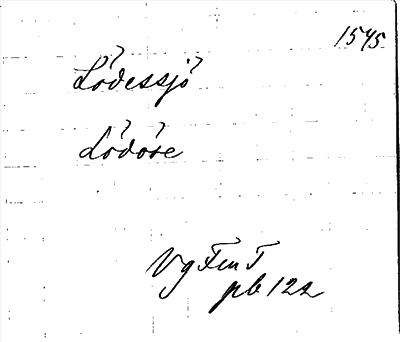 1545
Lödessjö
Lödöse
Vg Fm T
pb 122